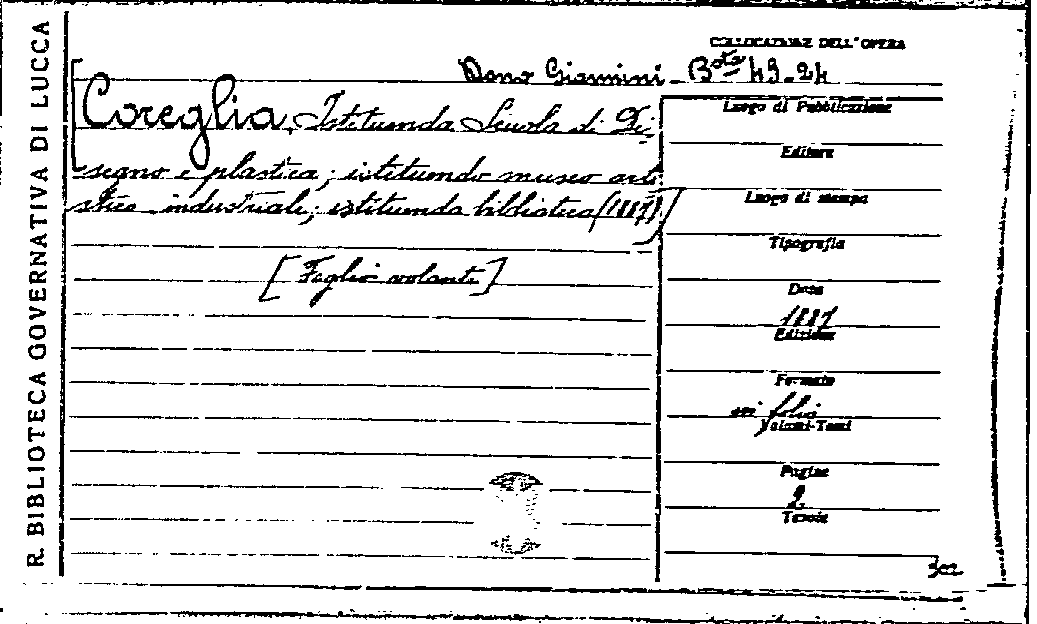 R. BIBLIOTECA GOVERNATIVA DI LUCCA
COLLOCAZIONE DELL'OPERA
Dono Giannini - B.sta 43-24
[Coreglia. Istituenda Scuola di Di-
segno e plastica; istituendo museo arti-
stico-industriale; istituenda biblioteca (1887)]
[Foglio volante]
Luogo di Pubblicazione
Editore
Luogo di stampa
Tipografia
Data
1887
Edizione
Formato
in folio
Volumi-Tomi
Pagine
2
Tavole
302